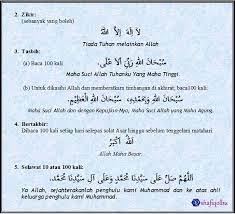 2. Zikir:
(sebanyak yang boleh)
لَا إِلَهَ إِلَّا اللهُ
Tiada Tuhan melainkan Allah
3. Tasbih:
(a) Baca 100 kali:
سُبْحَانَ اللهِ رَبِّيَ الْعَلِيِّ
Maha Suci Allah Tuhanku Yang Maha Tinggi.
(b) Untuk dikasihi Allah dan memberatkan timbangan di akhirat, baca100 kali:
سُبْحَانَ اللهِ وَبِحَمْدِهِ، سُبْحَانَ اللهِ الْعَظِيْمِ.
Maha Suci Allah dan dengan KepujianNya, Maha Suci Allah yang Maha Agung.
4. Bertakbir:
Dibaca 100 kali setiap hari selepas solat Asar hingga sebelum tenggelam matahari
اللهُ أَكْبَرُ
Allah Maha Besar.
5. Selawat 10 atau 100 kali:
اَللَّهُمَّ صَلِّ عَلَى سَيِّدِنَا مُحَمَّدٍ وَعَلَى آلِ سَيِّدِنَا مُحَمَّدٍ.
Ya Allah, sejahterakanlah penghulu kami Muhammad dan ke atas ahli
keluarga penghulu kami Muhammad.
shafiqolbu